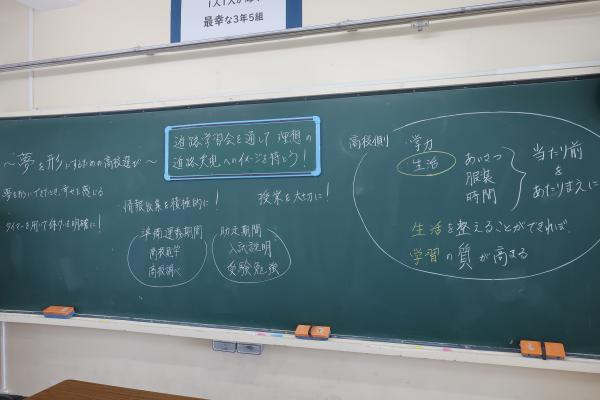 1人1人が輝く
最幸な3年5組
進路学習会を通して 理想の
進路実現へのイメージを持とう！
〜夢を形にするための高校選び〜
夢を形にできたとき幸せを感じる
情報収集を積極的に！
授業を大切に！
準備運動期間
高校見学
高校調べ
助走期間
入試説明
受験勉強
高校側
学力
生活
あいさつ
服装
時間
当たり前
を
あたりまえに
生活を整えることができれば
学習の質が高まる